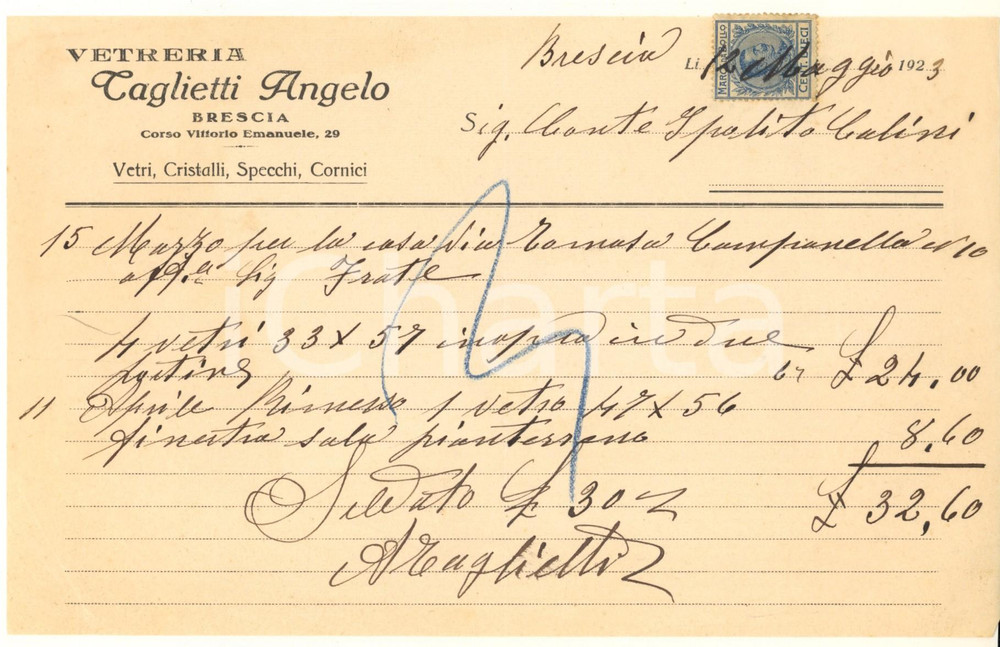 VETRERIA
Taglietti Angelo
BRESCIA
Corso Vittorio Emanuele, 29
Vetri, Cristalli, Specchi, Cornici
Brescia
Li 12 Maggio 1923
MARCA DA BOLLO
CENT. DIECI
Sig. Conte Ipolito Calini
15 Marzo per la casa Via Tomaso Campanella N 10
Sig Frate
4 vetri 33 X 57 in due
£ 24.00
11 Aprile Rimesso 1 vetro 47 X 56
finestra sala pianterreno 8,60
Saldato £ 30
£ 32,60
A Taglietti
iCharta